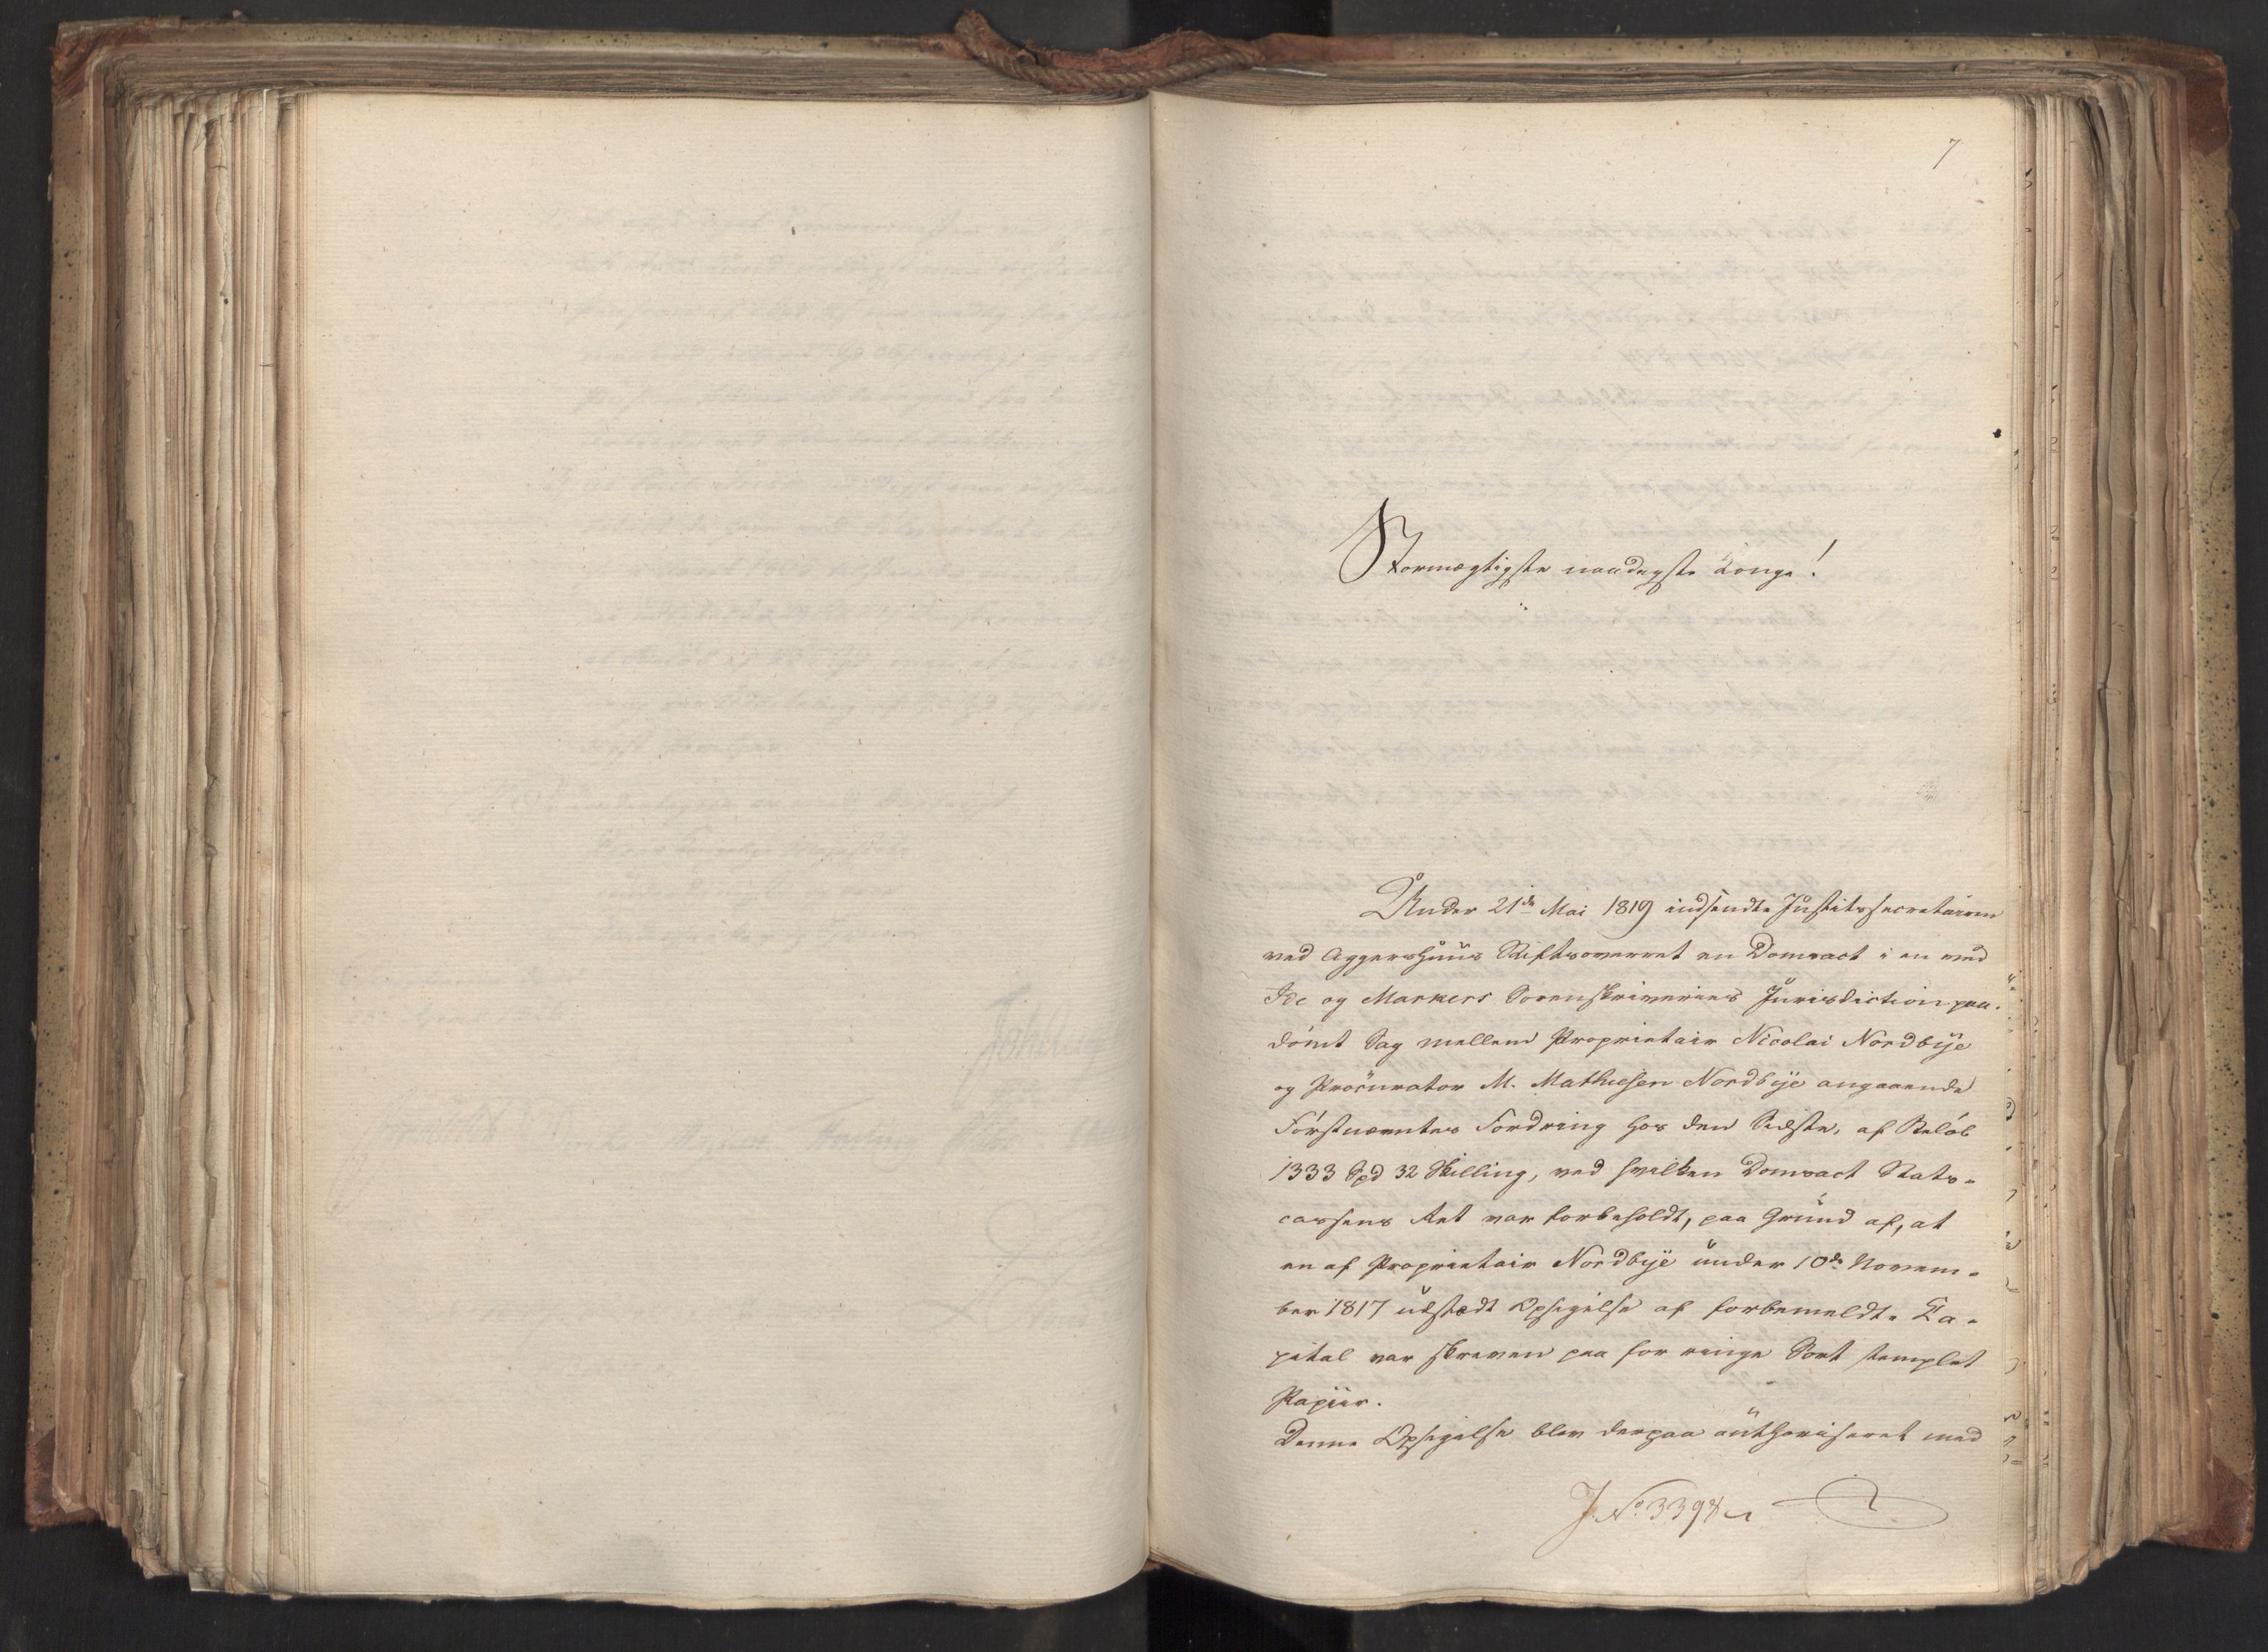 7
Stormægtigste naadigste Konge!
Under 21de Mai 1819 indsendte Justitssecretairen
ved Aggershuus Stiftsoverret en Domsact i en ved
Ide og Markers Sorenskriveries Jurisdiction paa-
dömt Sag mellem Proprietair Nicolai Nordbye
og Procurator M. Mathiesen Nordbye angaaende
Förstnævntes Fordring hos den Sidste, af Belöb
1333 Spd 32 Skilling, ved hvilken Domsact Stats-
cassens Ret var forbeholdt, paa Grund af, at
en af Proprietair Nordbye under 10de Novem-
ber 1817 udstædt Opsigelse af forbemeldte Ca-
pital var skreven paa for ringe Sort stemplet
Papiir.
Denne Opsigelse blev derpaa authoriseret med
J. No 3398